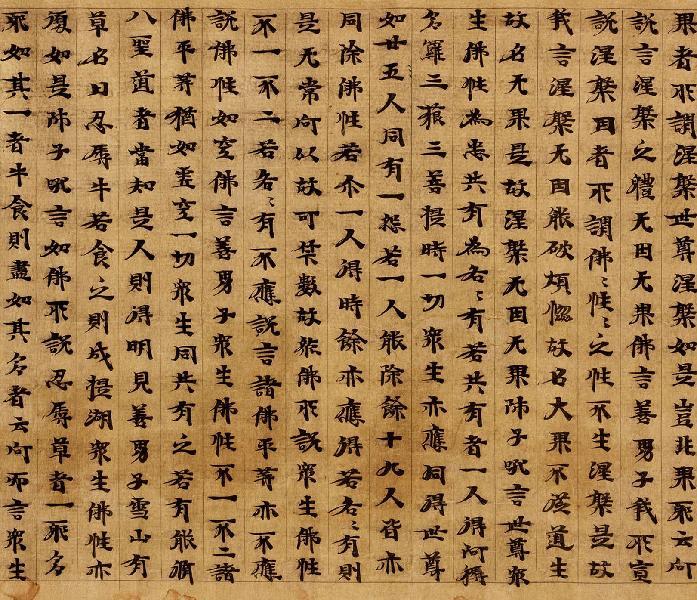 果者所謂涅槃世尊涅槃如是豈非果耶云何
說言涅槃之體无因无果佛言善男子我所宣
說涅槃因者所謂佛〻性〻之性不生涅槃是故
我言涅槃无因能破煩惱故名大果不從道生
故名无果是故涅槃无因无果師子吼言世尊衆
生佛性為悉共有為各〻有若共有者一人得阿耨
多羅三藐三菩提時一切衆生亦應同得世尊
如廿五人同有一怨若一人能除餘十九人皆亦
同除佛性若尒一人得時餘亦應得若各〻有則
是无常何以故可筭數故然佛所說衆生佛性
不一不二若各〻有不應說言諸佛平等亦不應
說佛性如空佛言善男子衆生佛性不一不二諸
佛平等猶如虛空一切衆生同共有之若有能脩
八聖道者當知是人則得明見善男子雪山有
草名曰忍辱牛若食之則成提湖衆生佛性亦
復如是師子吼言如佛所說忍辱草者一耶多
耶如其一者牛食則盡如其多者云何而言衆生